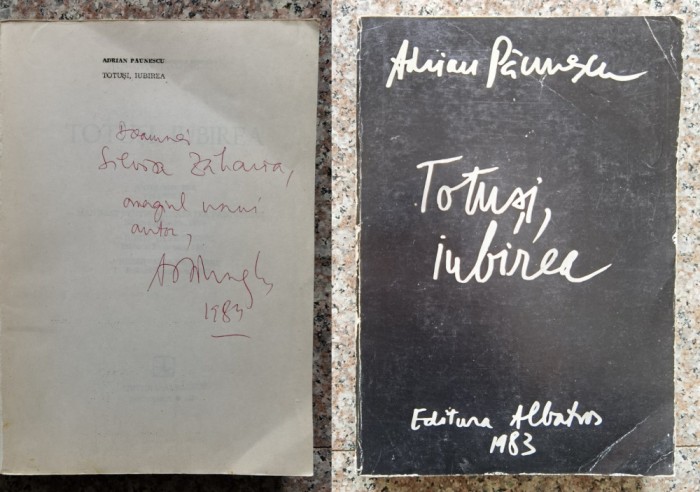 ADRIAN PĂUNESCU
TOTUȘI, IUBIREA
Doamnei
Silvia Zaharia,
omagiul unui
autor,
1983
Adrian Păunescu
Totuși,
iubirea
Editura Albatros
1983